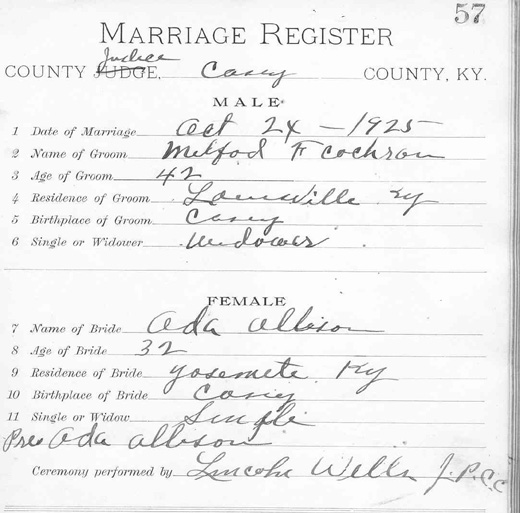 57
MARRIAGE REGISTER
Justice
COUNTY JUDGE, Casey COUNTY, KY.
MALE
1 Date of Marriage Oct 24 - 1925
2 Name of Groom Milford F Cochran
3 Age of Groom 42
4 Residence of Groom Louisville Ky
5 Birthplace of Groom Casey
6 Single or Widower Widower
FEMALE
7 Name of Bride Ada Allison
8 Age of Bride 32
9 Residence of Bride Yosemite Ky
10 Birthplace of Bride Casey
11 Single or Widow Single
Pres Ada Allison
Ceremony performed by Lincoln Wells J.P.C.C